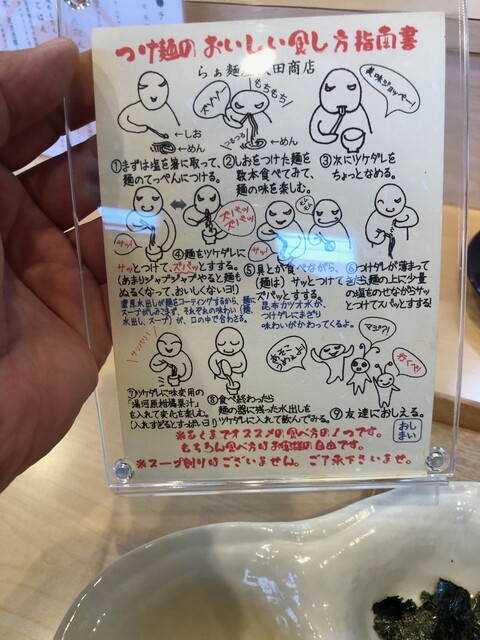 つけ麺のおいしい食し方指南書
らぁ麺 田商店
ズゾゾ
もちもち!
つるつる
美味ジョッパー!
←しお
←めん
←めん
①まずは塩を箸に取って、
麺のてっぺんにつける。
②しおをつけた麺を
数本食べてみて、
麺の味を楽しむ。
③次にツケダレを
ちょっとなめる。
サッ!
ズバッッ
ズバッッ
サッ!
④麺をツケダレに
サッとつけて、ズバッとすする。
(あまりジャブジャブやると麺も
ぬるくなって、おいしくないヨ!)
濃厚水出しが麺をコーティングするから、麺に
スープがしみこまず、それぞれの味わい(麺、
水出し、スープ)が、口の中で合わさる。
⑤具とか食べながら、
(麺は)サッとつけて
ズバッとすする!
昆布カツオ水が、
つけダレにまざり
味わいがかわってくるよ。
⑥つけダレが薄まって
きたら麺の上に少量
の塩をのせながらサッ
とつけてスバッとすする!
サッパリ!
⑦ツケダレに味変用の
「湯河原柑橘果汁」
を入れて変化を楽しむ。
(入れすぎるとすっぱいヨ!)
⑧食べ終わったら
麺の器に残った水出しを
ツケダレに入れて飲んでみる。
マジ?!
行くべ!
⑨友達におしえる。
おしまい
※あくまでオススメの食べ方の1つです。
もちろん食べ方はお客様の自由です。
※スープ割りはございません。ご了承下さいませ。